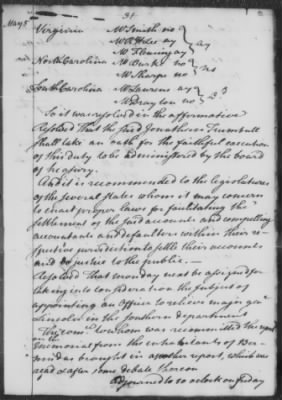 31
May 5
Virginia Mr Smith no
Mr Fleming ay } ay
North Carolina Mr Burke no
Mr Sharpe no } no
South Carolina Mr Laurens ay
Mr Drayton no }
So it was resolved in the affirmative
Resolved That the said Jonathan Trumbull
shall take an oath for the faithful execution
of his duty to be administered by the board
of treasury.
And it is recommended to the legislatures
of the several states whom it may concern
to enact proper laws for facilitating the
settlement of the said accounts and compelling
accountants and defaulters within their re-
spective jurisdiction to settle their accounts
and do justice to the public.—
Resolved That monday next be assigned for
taking into consideration the subject of
appointing an officer to relieve major genl
Lincoln in the southern department
The comee to whom was recommitted the report
on the memorial from the inhabitants of Ber-
mudas brought in another report, which was
read & after some debate thereon
adjourned to 10 oClock on friday